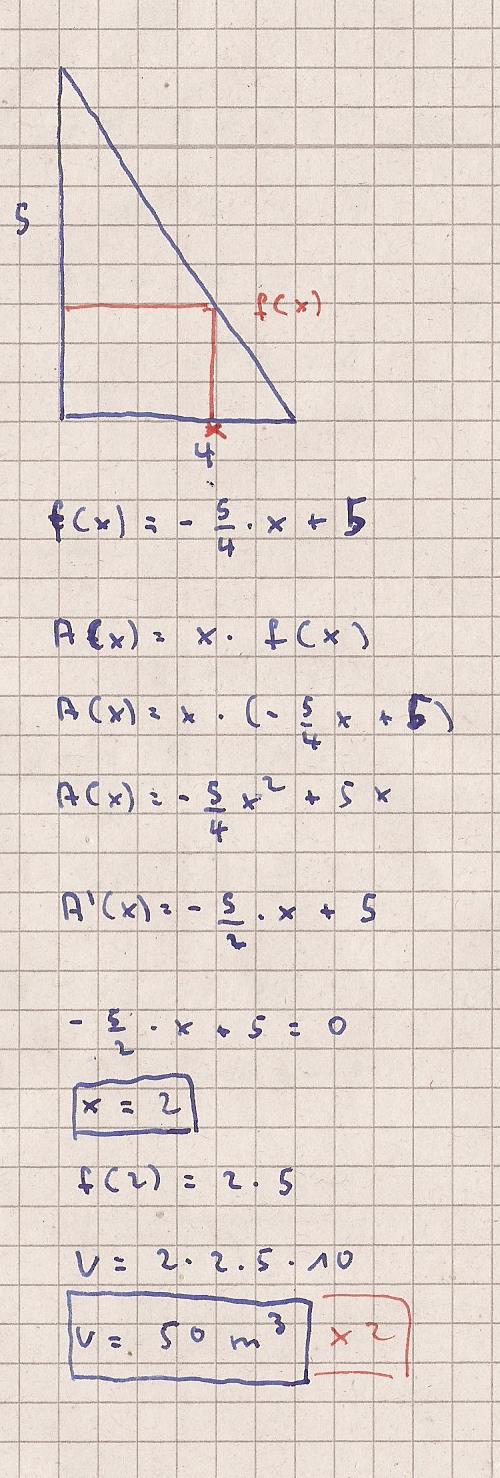 5
f(x)
x
4
f(x) = - 5/4 · x + 5
A(x) = x · f(x)
A(x) = x · (- 5/4 x + 5)
A(x) = - 5/4 x² + 5 x
A'(x) = - 5/2 · x + 5
- 5/2 · x + 5 = 0
x = 2
f(2) = 2.5
V = 2 · 2.5 · 10
V = 50 m³ x 2